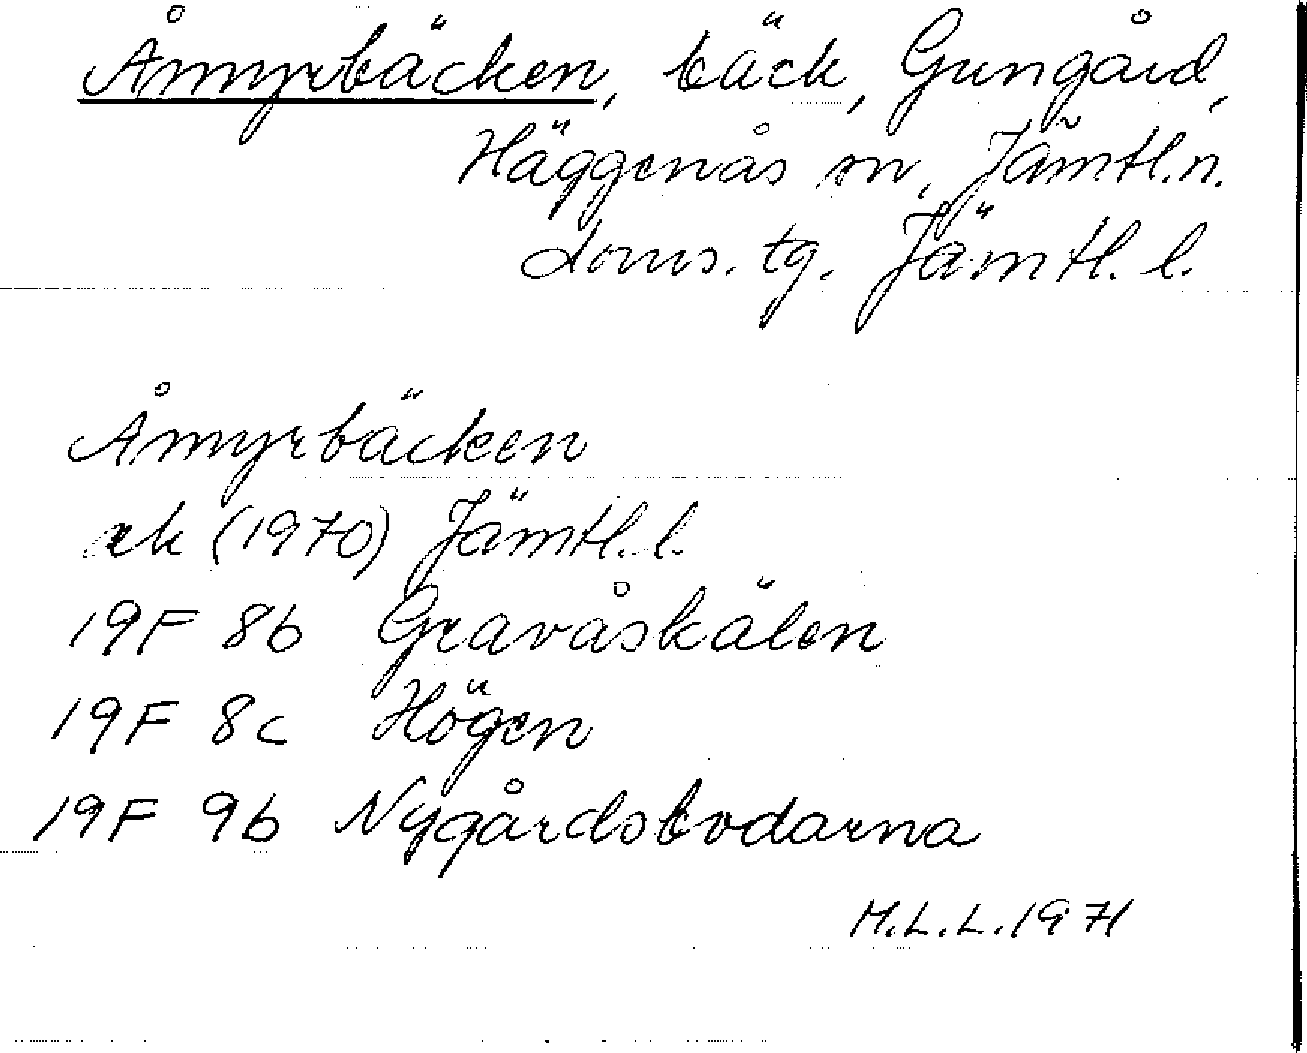 Åmyrbäcken, bäck, Gungård,
Häggenås sn, Jämtl.n.
doms. tg. Jämtl. l.
Åmyrbäcken
ek (1970) Jämtl. l.
19F 8b Gravåskälen
19F 8c Högen
19F 9b Nygårdsbodarna
M.L.L. 1971